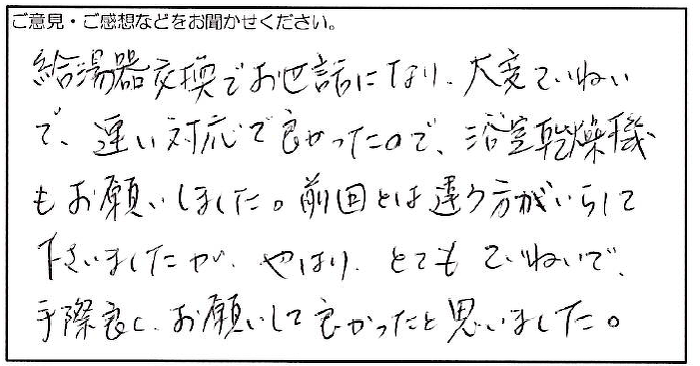 ご意見・ご感想などをお聞かせください。
給湯器交換でお世話になり、大変ていねい
で、速い対応で良かったので、浴室乾燥機
もお願いしました。前回とは違う方がいらして
下さいましたが、やはり、とても ていねいで、
手際良く、お願いして良かったと思いました。